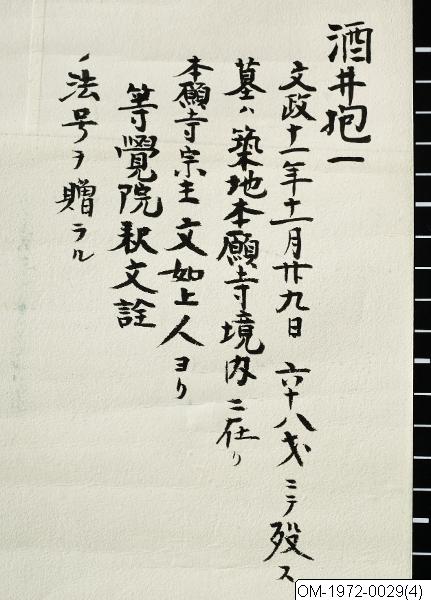 酒井抱一
文政十一年十一月廿九日 六十八才ニテ歿ス
墓ハ築地本願寺境内ニ在リ
本願寺宗主文如上人ヨリ
等覺院釈文詮
ノ法号ヲ贈ラル
OM-1972-0029(4)